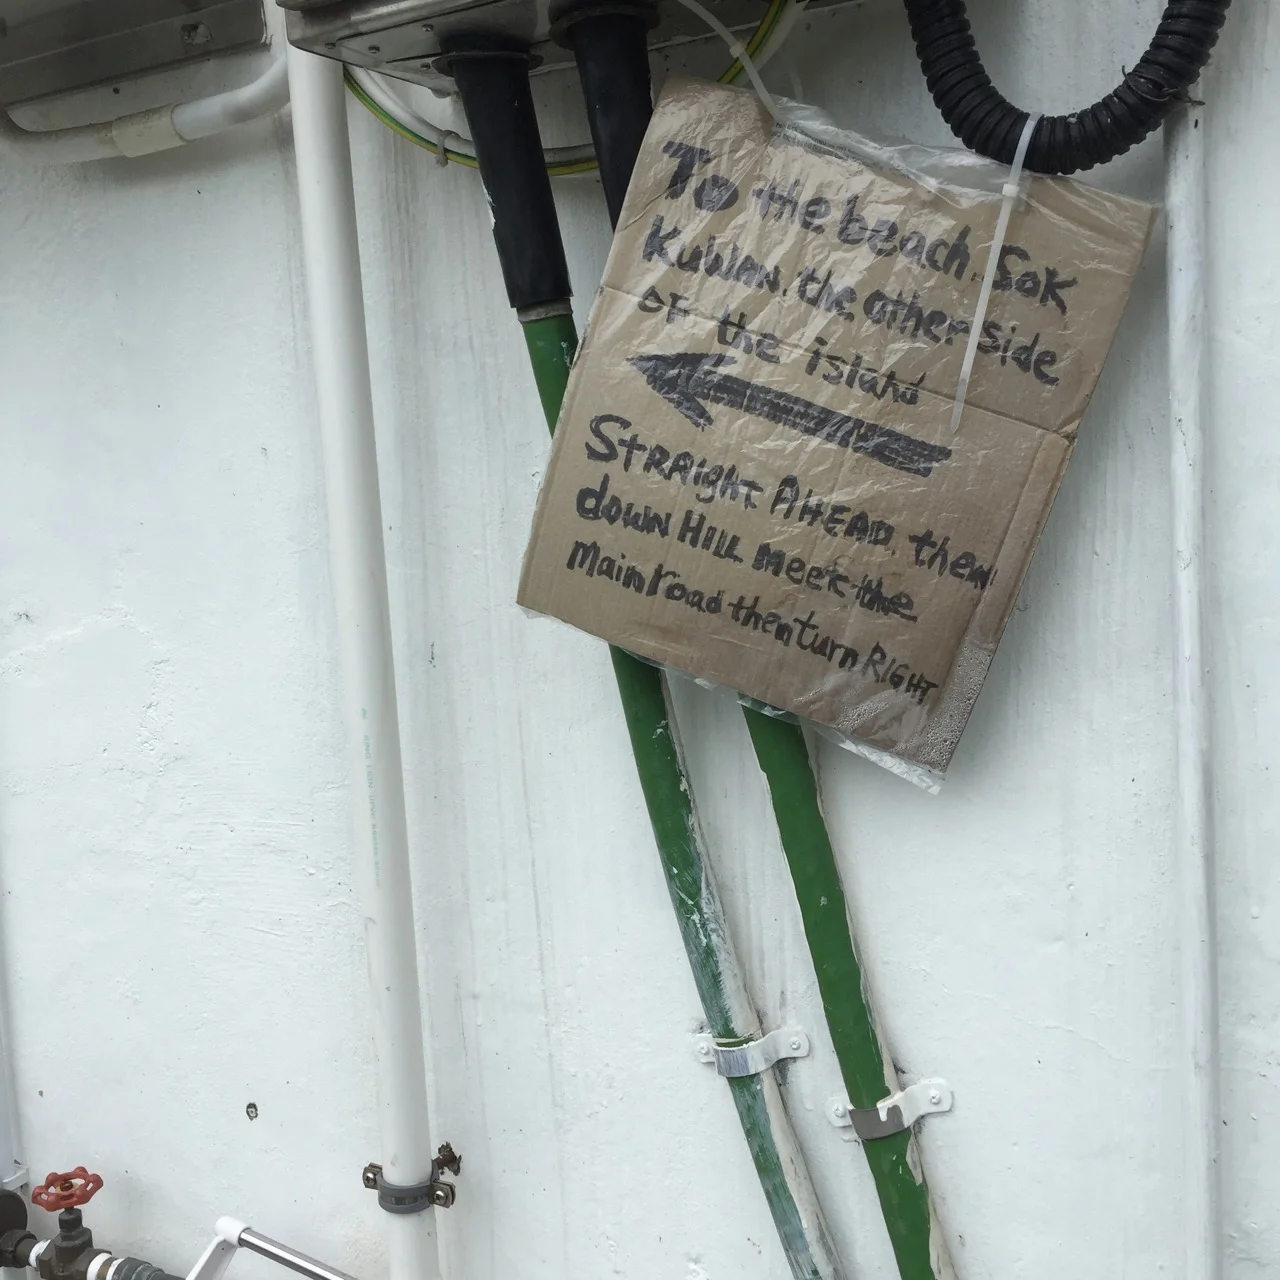 To the beach, Sok
Kuwan, the other side
of the island
Straight AHEAD, then
down HILL meet the
Main road then turn RIGHT